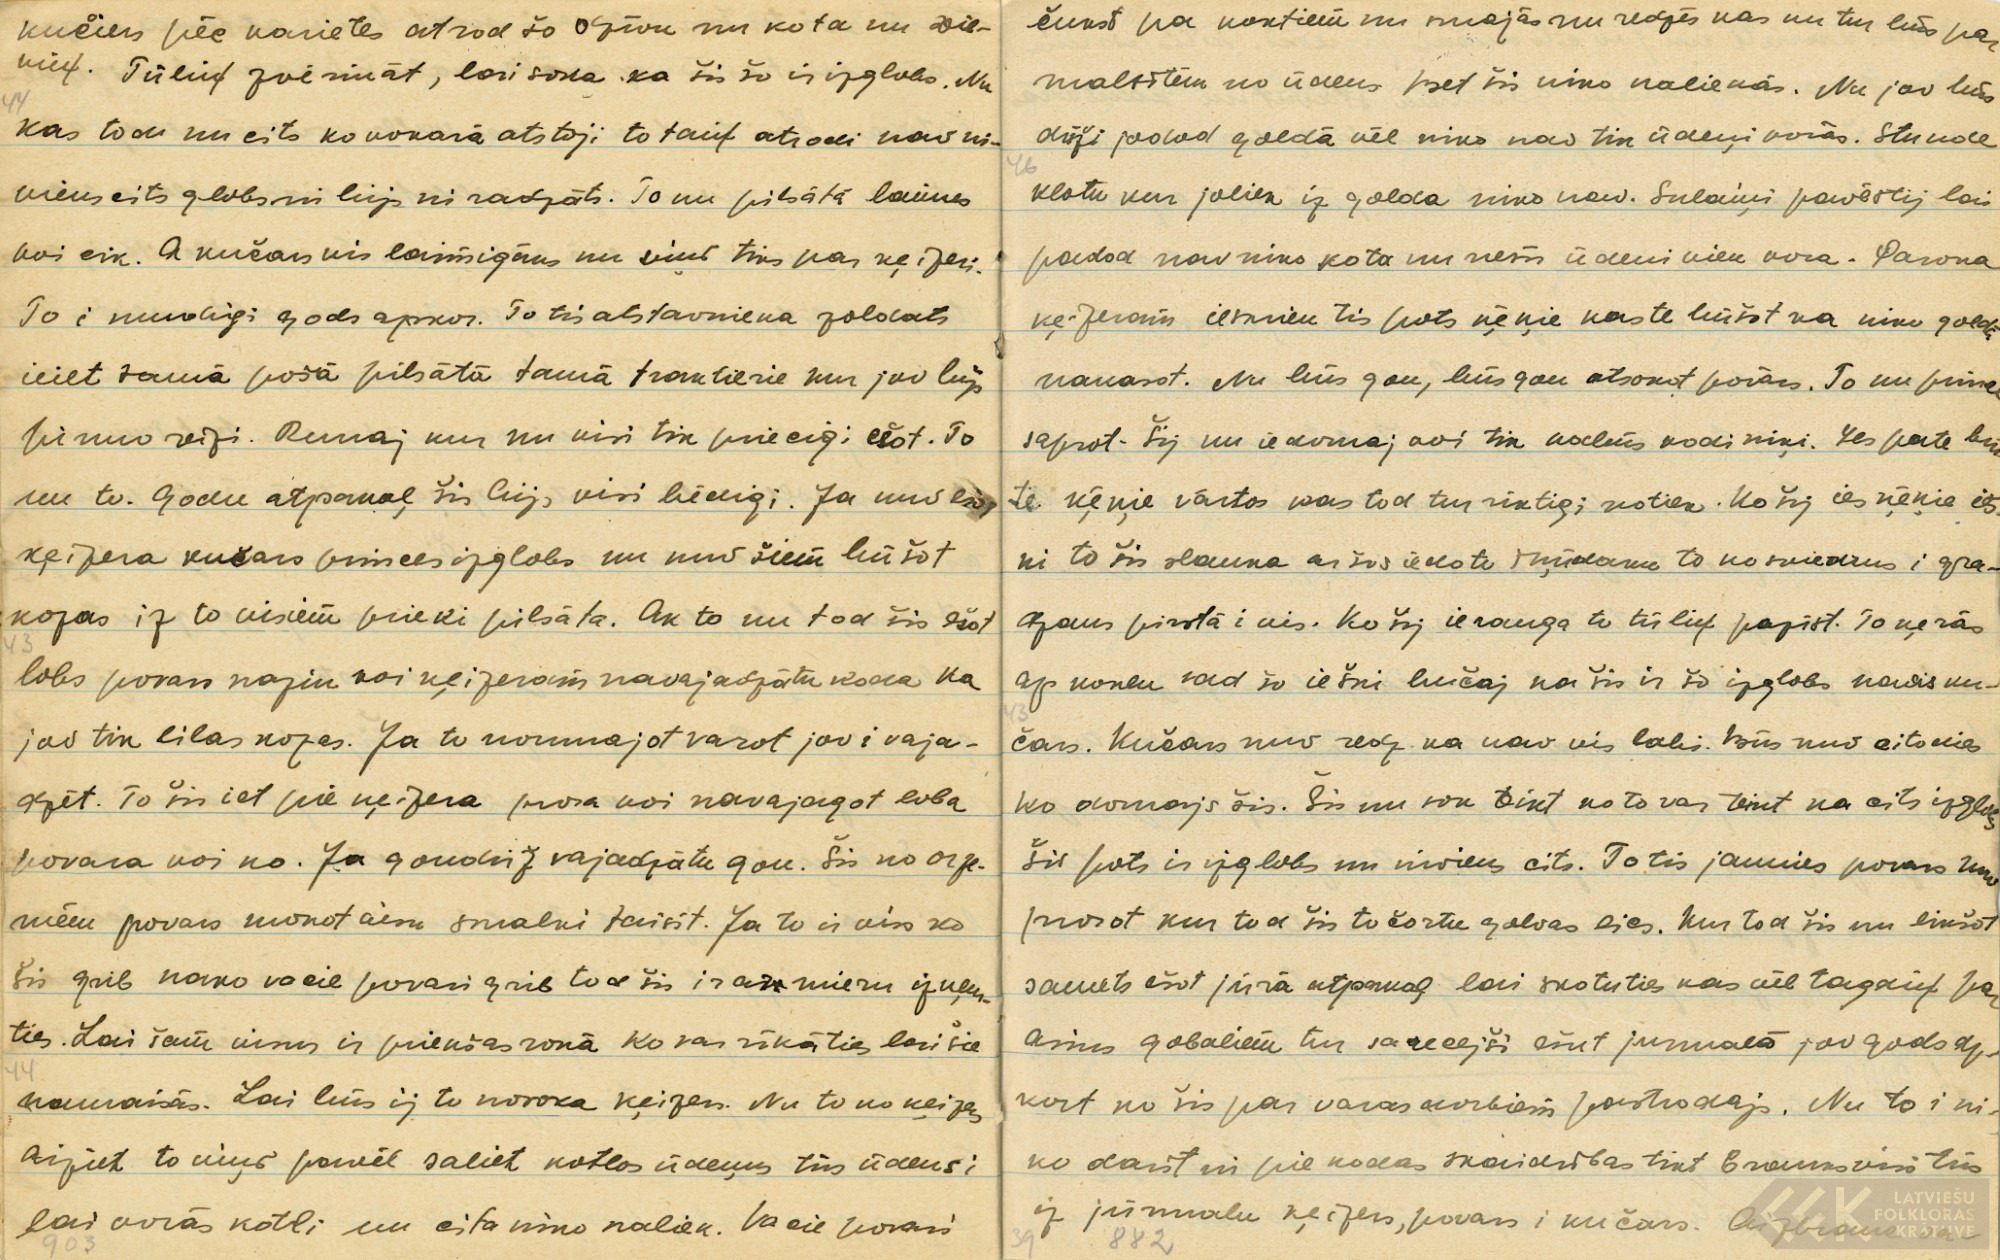 kučiers pēc karietes atrod šo dzīvu nu kota nu
Tūliņ zvērināt, lai soka ka šis šo ir izglobs. Nu
44
kas todu nu cits ko vokarā atstoji to tauf atrodi nav ni-
viens cits globs ni lijs ni radzāts. To nu pilsātā laimes
voi cik. A kučars vis laimigāks nu viņš tiks par ķeizeri.
To i mudigi gods apkor. To tis atstavnieka zoldats
ieiet samā pošā pilsātā tamā traktierie kur jov lijs
pirmo reizi. Runaj kur nu visi tik priecigi ešot. To
nu to. Godu atpakaļ šis lijs visi bēdigi. Ja nuv
ķeizera kučars princes izglobs nu nuv šiem būšot
kozas iz to visiem prieki pilsāta. Ak to nu tod šis ešot
43
lobs povars nazin voi ķeizeram navajadzātu koda ka
jov tik lilas kozas. Ja to nommajot varot jov i vaja-
dzēt. To šis iet pie ķeizera prosa voi navajagot loba
povara voi ko. Ja goudriž vajadzātu gon. Šis no
povars mokot
smalki taisit. Ja to ir viss ko
šis grib nako vacie povari grib tod šis ir ar mieru izņem-
ties. Lai šam viņus ir priekšas rokā ko vas rīkāties lai šie
44
namaisās. Lai būs ij to nosoka ķeizers. Nu to no ķeizera
aiziet to viņš pavēl saliet kotlos ūdeņus tīs ūdeņsi
lai vorās kotli nu cita niko naliek. Vacie povari
903
čukst pa koktiem nu smajās nu redzēs kas nu tur būs par
malsītem no ūdens bet šis niko naliekās. Nu jov būs
drīži jodod goldā vēl niko nav tik ūdeņi vorās. Stunde
46
klotu kur joliek iz golda niko nav. Sulaiņi pavēstij lai
padod nav niko kota nu nesīs ūdeni vien vora. Parona
ķeizeram ieskrien tis pots ķēķie kas te būšot ka niko goldā
nanasot. Nu būs gon, būs gon atsokot povars. To nu prince
saprot. Šij nu iedomaj voi tik nabūs kodi niķi. Ies pate
te ķēķie vārtos kas tod tur riktigi notiek. Ko šij ies ķēķie
ni to šis slauka ar šos iedotu to nosviedrus i gra-
dzans pirstā i vis. Ko šij ierauga to tūliņ pazīst. To ķerās
ap koklu sad šo iekšni bučaj ka šis ir šo izglobs navis ku-
43
čars. Kučars nuv redz ka nav vis labi. Būs nuv citodies
ko domajs šis. Šis nu sok tikt ko to var teikt ka cits izglobs
Šis pots ir izglobs nu niviens cits. To tis jaunies povars nuv
prosot kur tod šis to čortu golvas lics. Kur tod šis nu likšot
samets ešot jūrā atpakaļ lai skotuties kas vēl tagauf par
asins gobaliem tur sarecejši ešut jurmalā jov gods ap-
kort ko šis par varas dorbiem pastrodajs. Nu to i ni-
ko darīt ni pie kodas skaidribas tikt brauks visi tīs
iz jūrmalu ķeizers, povars i kučars.
39 882
LATVIEŠU
FOLKLORAS
KRĀTUVE